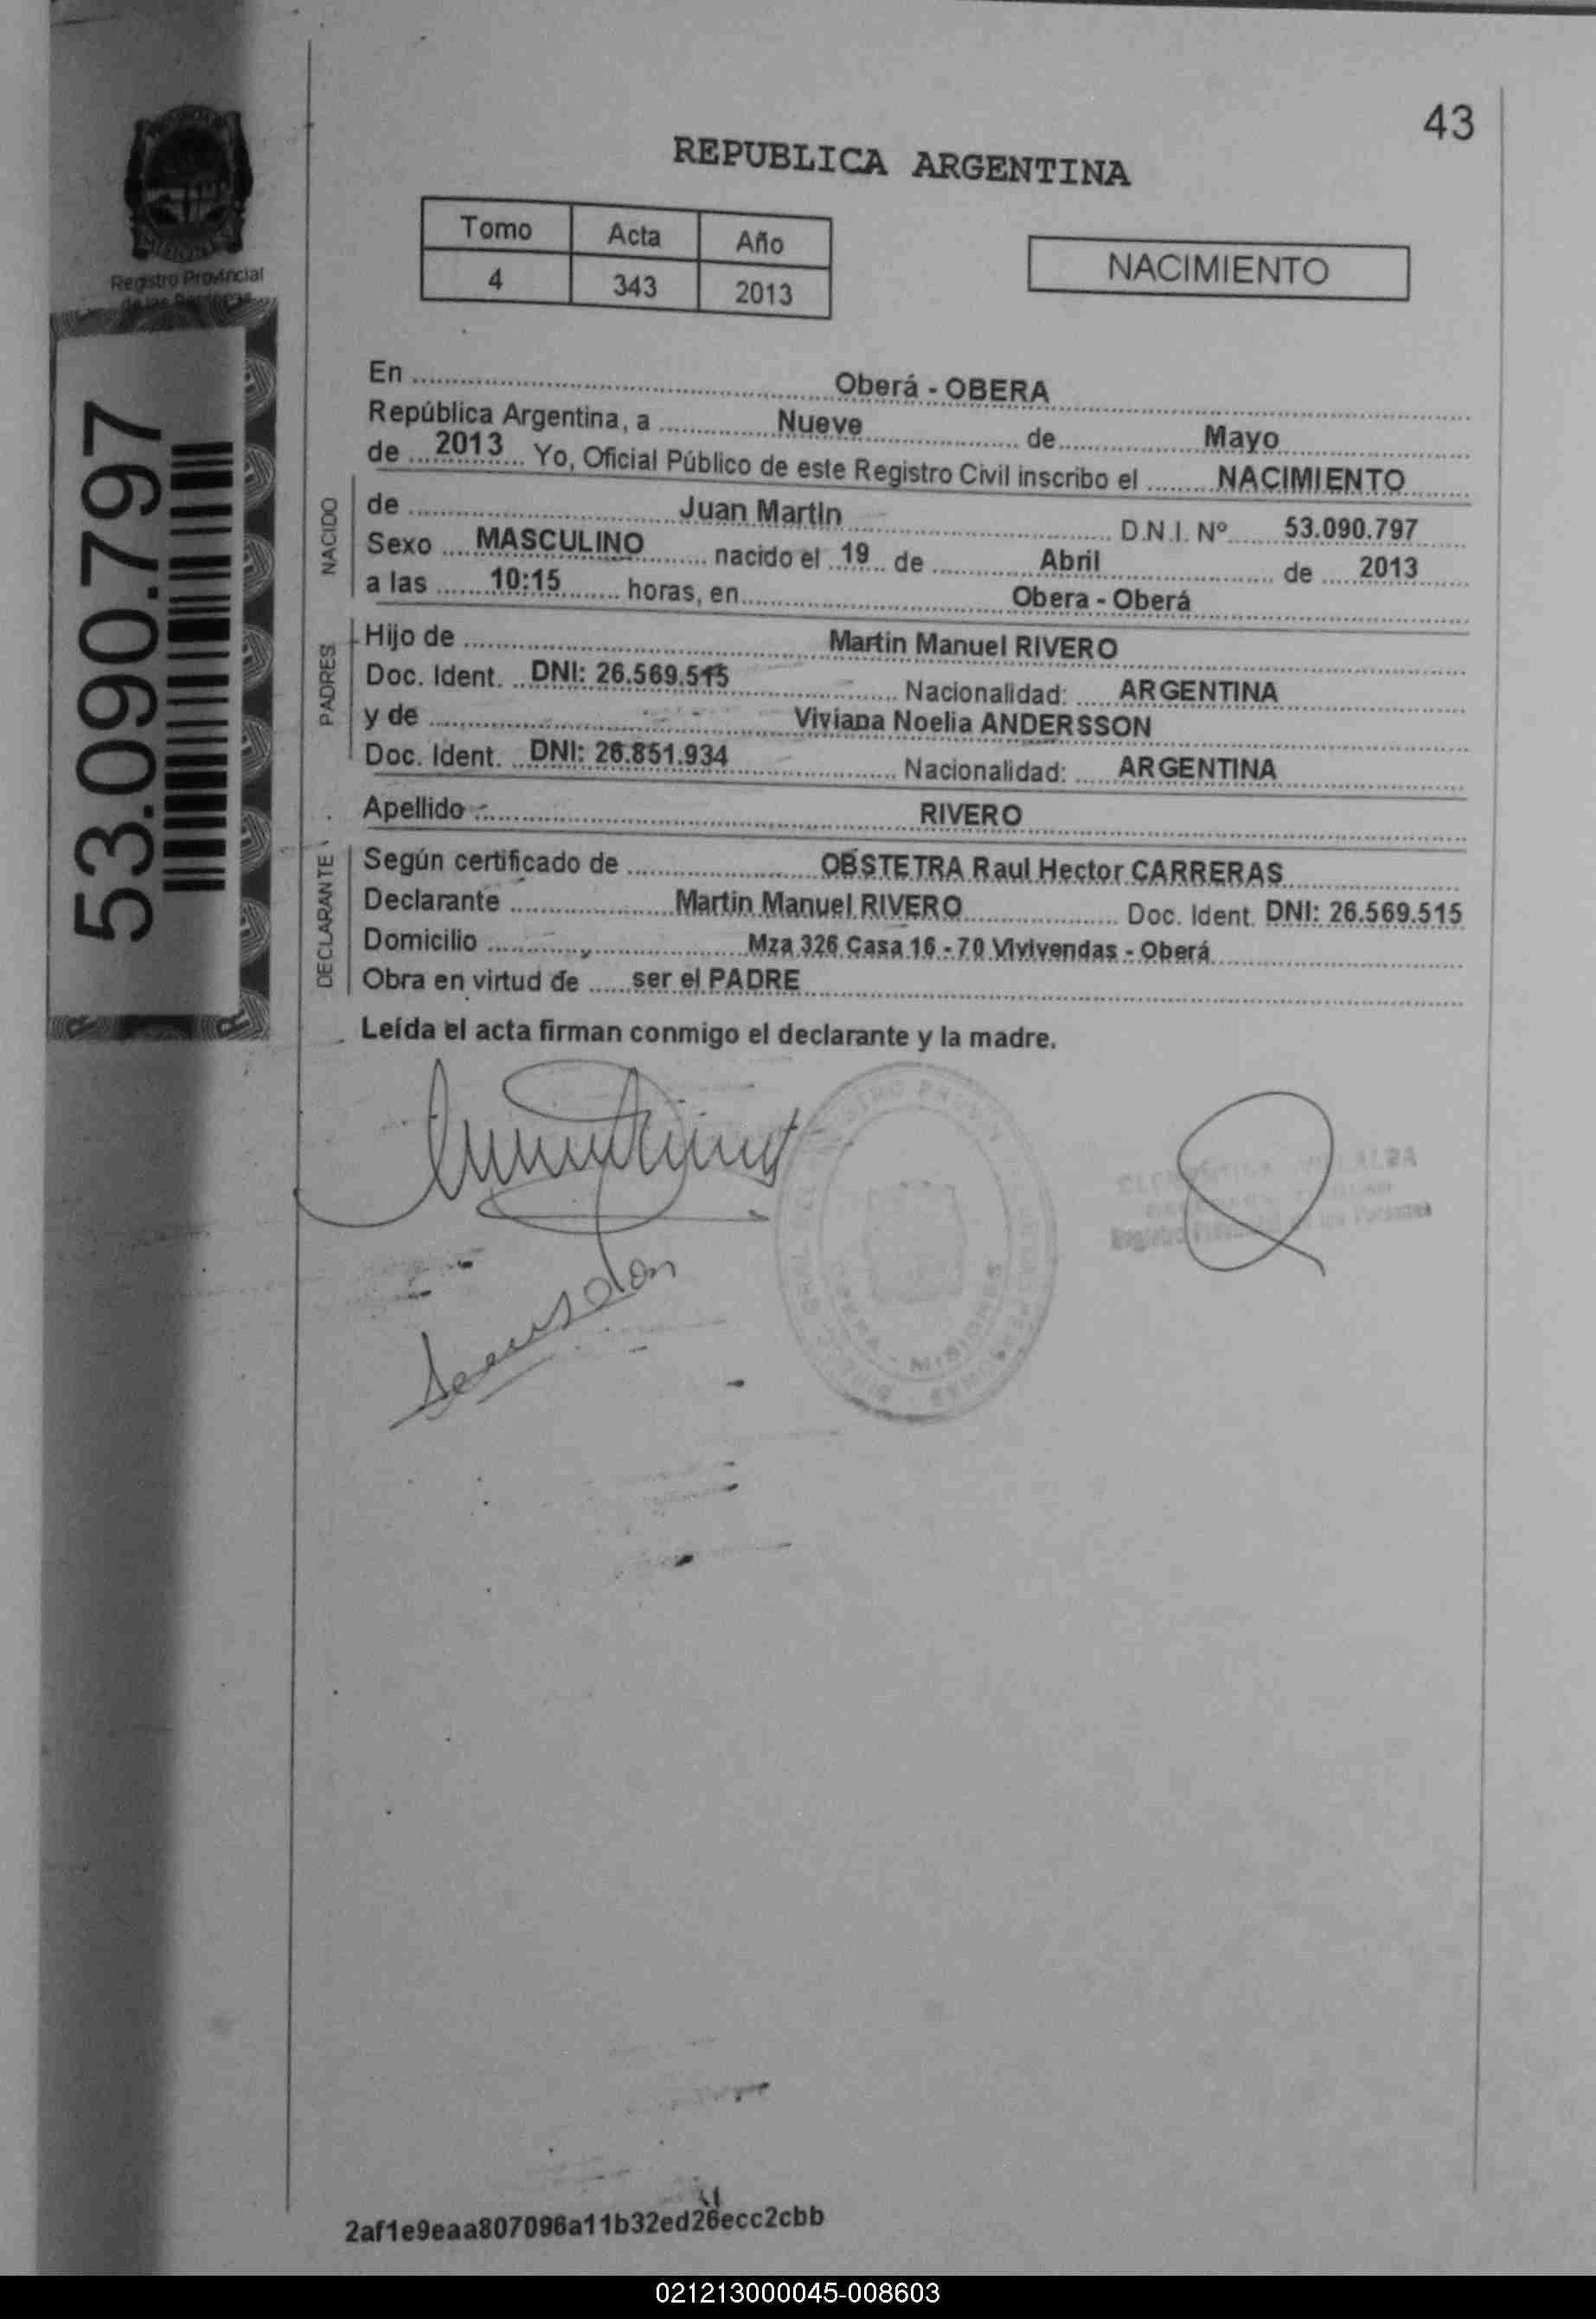 43
REPUBLICA ARGENTINA
Tomo Acta Año
4 343 2013
NACIMIENTO
Registro Provincial
de las Personas
53.090.797
En Oberá - OBERA
República Argentina, a Nueve de Mayo
de 2013 Yo, Oficial Público de este Registro Civil inscribo el NACIMIENTO
NACIDO
de Juan Martin D.N.I. Nº 53.090.797
Sexo MASCULINO nacido el 19 de Abril de 2013
a las 10:15 horas, en Obera - Oberá
PADRES
Hijo de Martin Manuel RIVERO
Doc. Ident. DNI: 26.569.515 Nacionalidad: ARGENTINA
y de Viviana Noelia ANDERSSON
Doc. Ident. DNI: 26.851.934 Nacionalidad: ARGENTINA
Apellido RIVERO
DECLARANTE
Según certificado de OBSTETRA Raul Hector CARRERAS
Declarante Martin Manuel RIVERO Doc. Ident. DNI: 26.569.515
Domicilio Mza 326 Casa 16 - 70 Vivivendas - Oberá
Obra en virtud de ser el PADRE
Leída el acta firman conmigo el declarante y la madre.
MISIONES
2af1e9eaa807096a11b32ed26ecc2cbb
021213000045-008603